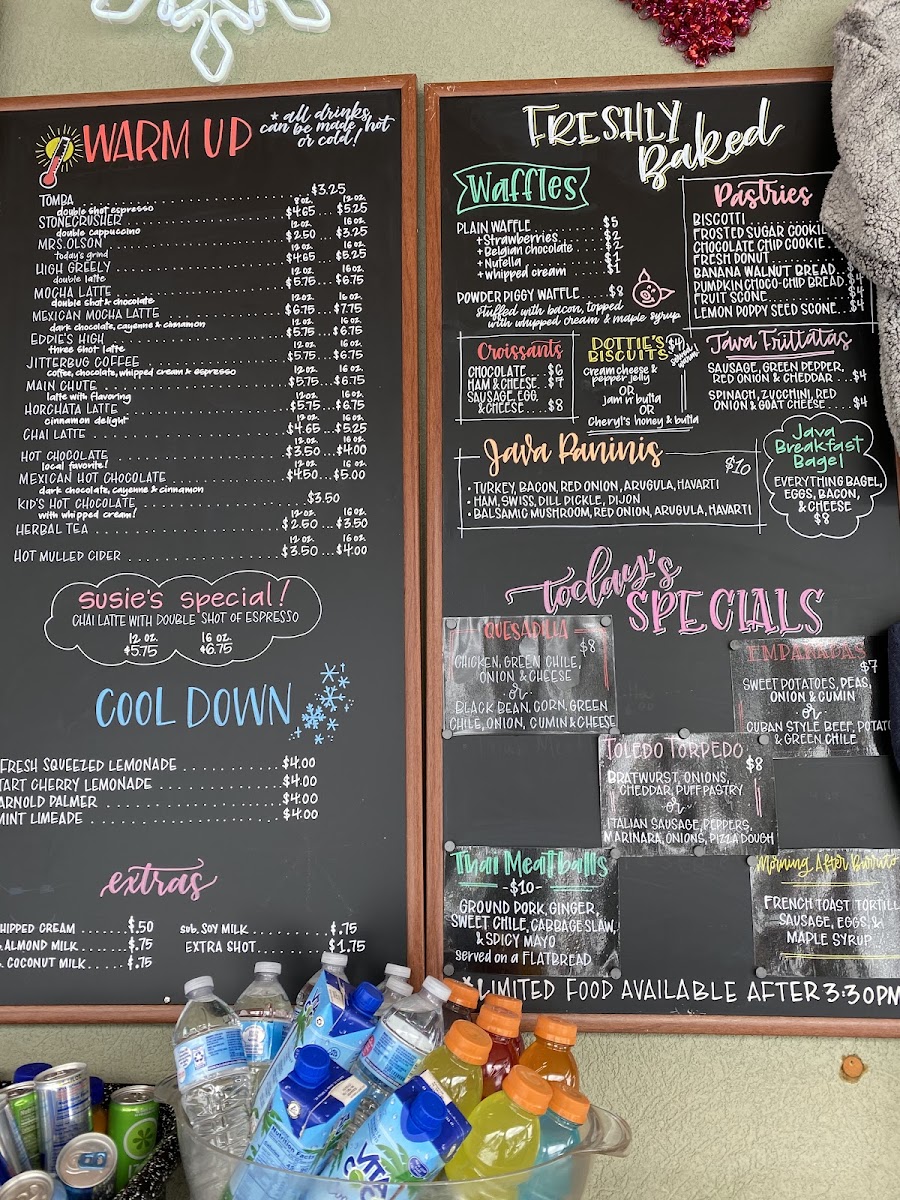 WARM UP
* all drinks
can be made hot
or cold!
TOMBA $3.25
double shot espresso 8 oz. 12 oz.
STONECRUSHER $4.65 ... $5.25
double cappuccino 12 oz. 16 oz.
MRS. OLSON $2.50 ... $3.25
today's grind 12 oz. 16 oz.
HIGH GREELY $4.65 ... $5.25
double latte 12 oz. 16 oz.
MOCHA LATTE $5.75 ... $6.75
double shot & chocolate 12 oz. 16 oz.
MEXICAN MOCHA LATTE $6.75 ... $7.75
dark chocolate, cayenne & cinnamon 12 oz. 16 oz.
EDDIE'S HIGH $5.75 ... $6.75
three shot latte 12 oz. 16 oz.
JITTERBUG COFFEE $5.75 ... $6.75
coffee, chocolate, whipped cream & espresso 12 oz. 16 oz.
MAIN CHUTE $5.75 ... $6.75
latte with flavoring 12 oz. 16 oz.
HORCHATA LATTE $5.75 ... $6.75
cinnamon delight 12 oz. 16 oz.
CHAI LATTE $4.65 ... $5.25
12 oz. 16 oz.
HOT CHOCOLATE $3.50 ... $4.00
local favorite! 12 oz. 16 oz.
MEXICAN HOT CHOCOLATE $4.50 ... $5.00
dark chocolate, cayenne & cinnamon
KID'S HOT CHOCOLATE $3.50
with whipped cream! 12 oz. 16 oz.
HERBAL TEA $2.50 ... $3.50
12 oz. 16 oz.
HOT MULLED CIDER $3.50 ... $4.00
SUSIE'S special!
CHAI LATTE WITH DOUBLE SHOT OF ESPRESSO
12 oz. 16 oz.
$5.75 $6.75
COOL DOWN
FRESH SQUEEZED LEMONADE $4.00
TART CHERRY LEMONADE $4.00
ARNOLD PALMER $4.00
MINT LIMEADE $4.00
extras
HIPPED CREAM $.50
ALMOND MILK $.75
COCONUT MILK $.75
sub. SOY MILK $.75
EXTRA SHOT $1.75
FRESHLY
Baked
Waffles
PLAIN WAFFLE $5
+ Strawberries $2
+ Belgian chocolate $2
+ Nutella $1
+ whipped cream $1
POWDER PIGGY WAFFLE $8
stuffed with bacon, topped
with whupped cream & maple syrup
Pastries
BISCOTTI
FROSTED SUGAR COOKIE
CHOCOLATE CHIP COOKIE
FRESH DONUT
BANANA WALNUT BREAD
PUMPKIN CHOCO-CHIP BREAD $4
FRUIT SCONE $4
LEMON POPPY SEED SCONE $4
Croissants
CHOCOLATE $6
HAM & CHEESE $7
SAUSAGE, EGG,
& CHEESE $8
DOTTIE'S $4
BISCUITS
cream cheese &
pepper jelly
OR
jam n' butta
OR
Cheryl's honey & butta
Java Frittatas
SAUSAGE, GREEN PEPPER,
RED ONION & CHEDDAR $4
SPINACH, ZUCCHINI, RED
ONION & GOAT CHEESE $4
Java Paninis $10
• TURKEY, BACON, RED ONION, ARUGULA, HAVARTI
• HAM, SWISS, DILL PICKLE, DIJON
• BALSAMIC MUSHROOM, RED ONION, ARUGULA, HAVARTI
Java
Breakfast
Bagel
EVERYTHING BAGEL,
EGGS, BACON,
& CHEESE
$8
today's
SPECIALS
QUESADILLA $8
CHICKEN, GREEN CHILE,
ONION & CHEESE
or
BLACK BEAN, CORN, GREEN
CHILE, ONION, CUMIN & CHEESE
EMPANADAS
$7
SWEET POTATOES, PEAS,
ONION & CUMIN
or
CUBAN STYLE BEEF, POTATO
& GREEN CHILE
TOLEDO TORPEDO
$8
BRATWURST, ONIONS,
CHEDDAR, PUFF PASTRY
or
ITALIAN SAUSAGE, PEPPERS,
MARINARA, ONIONS, PIZZA DOUGH
Thai Meatballs
- $10 -
GROUND PORK, GINGER,
SWEET CHILE, CABBAGE SLAW,
& SPICY MAYO
served on a FLATBREAD
Morning After Burrito
FRENCH TOAST TORTILL
SAUSAGE, EGGS, &
MAPLE SYRUP
*LIMITED FOOD AVAILABLE AFTER 3:30PM
Nutrition Facts
VITA
CO